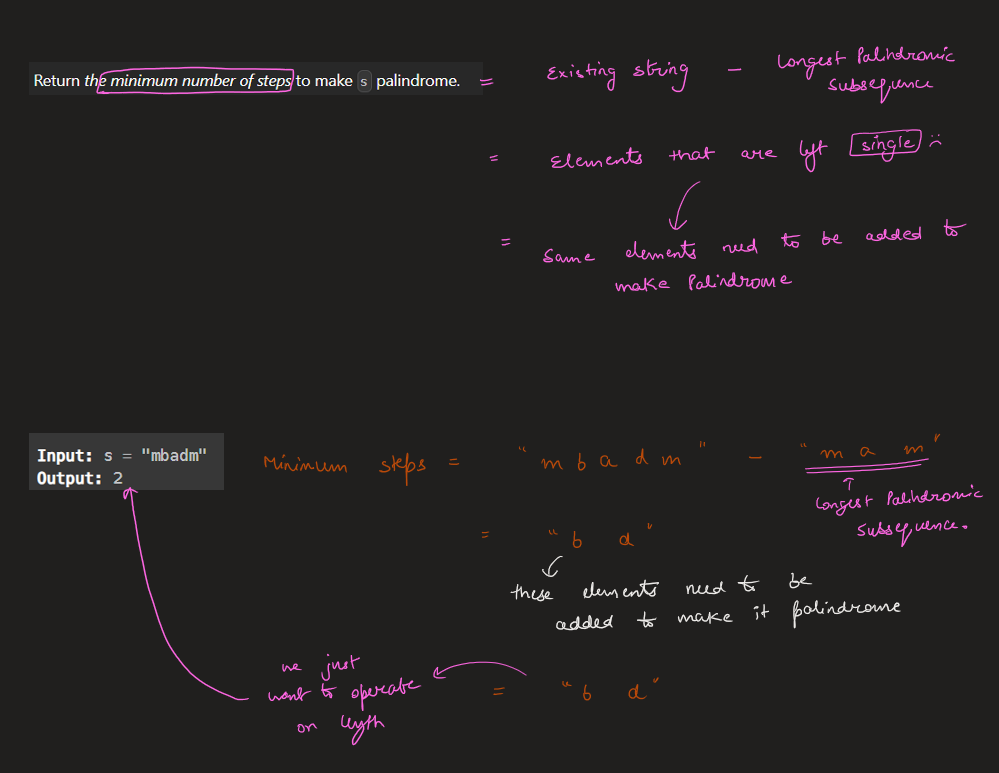 Return the minimum number of steps to make s palindrome. = Existing string - Longest Palindromic
subsequence
= Elements that are left single :(
= Same elements need to be added to
make Palindrome
Input: s = "mbadm"
Output: 2
Minimum steps = "m b a d m" - "m a m"
Longest Palindromic
subsequence.
= "b d"
these elements need to be
added to make it palindrome
we just
want to operate
on length
= "b d"